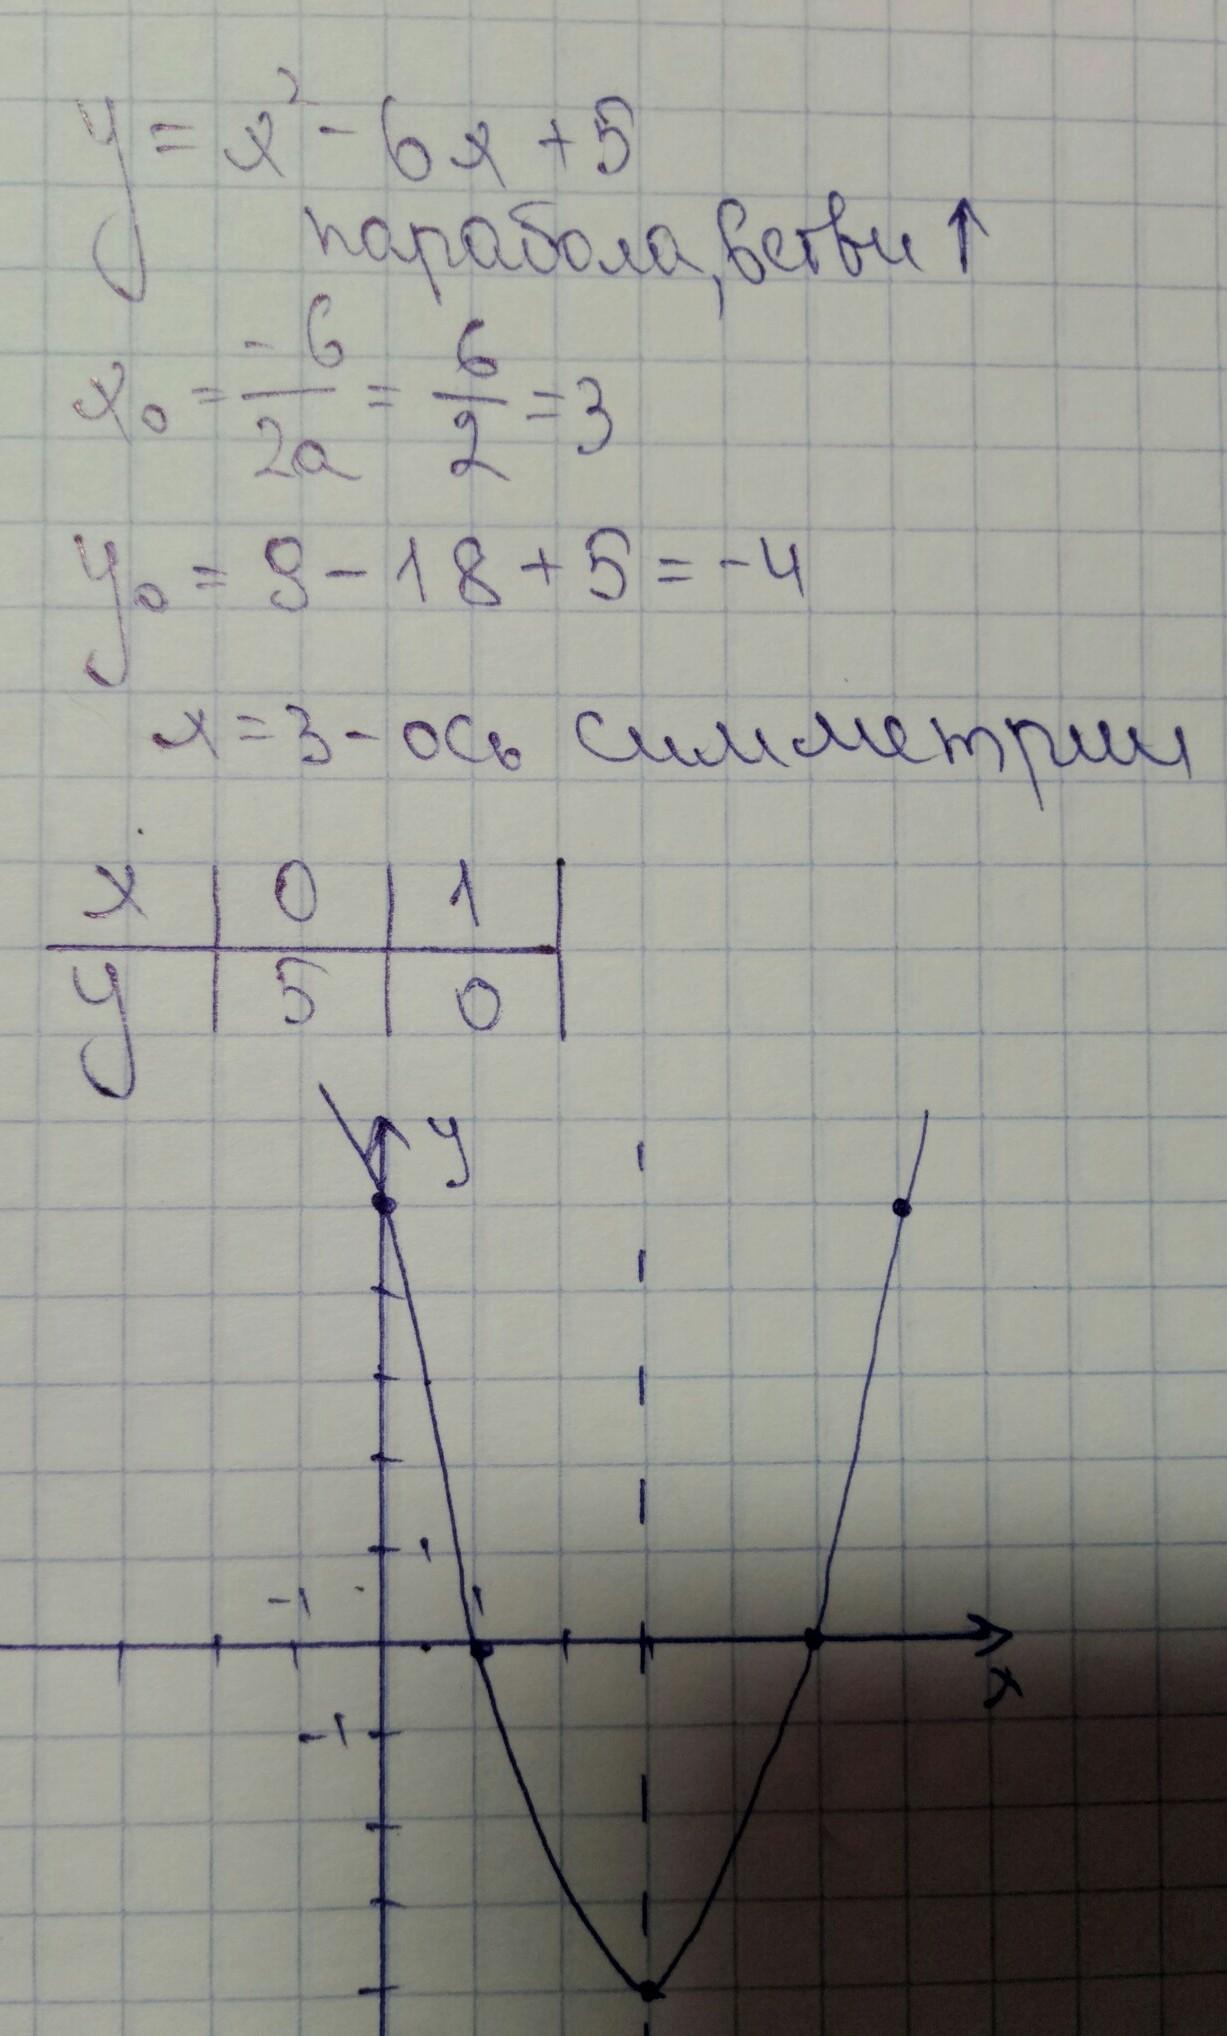 y = x² - 6x + 5
парабола, ветви ↑
x₀ = -б/2a = 6/2 = 3
y₀ = 9 - 18 + 5 = -4
x = 3 - ось симметрии
x | 0 | 1 |
y | 5 | 0 |
y
1
-1 1
x
-1